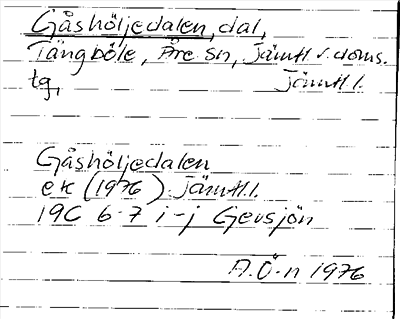 Gåshöljedalen, dal,
Tängböle, Åre sn, Jämtl. v. doms.
tg, Jämtl. l.
Gåshöljedalen
ek (1976) Jämtl. l.
19C 6-7 i-j Gevsjön
A.Ö-n 1976